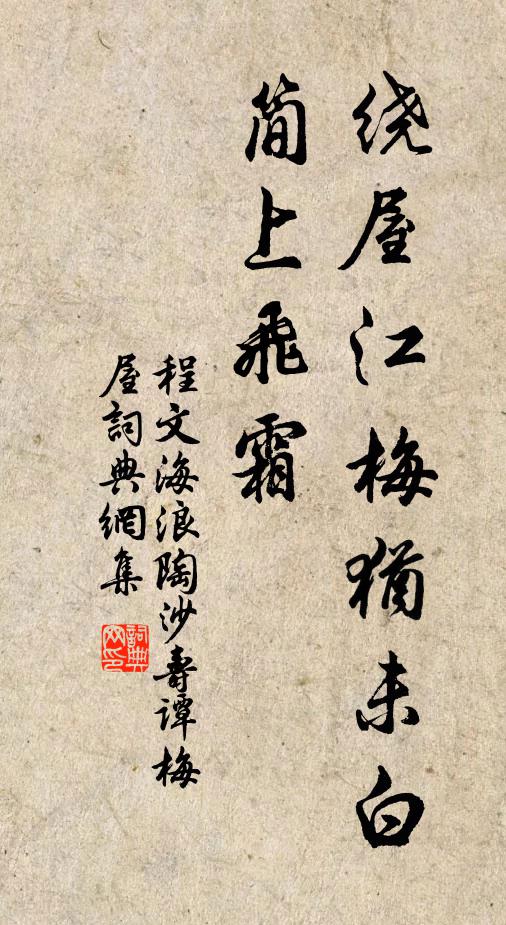 绕屋江梅犹未白
简上飞霜
程文海浪陶沙寿谭梅
屋詞典網集
詞典网印